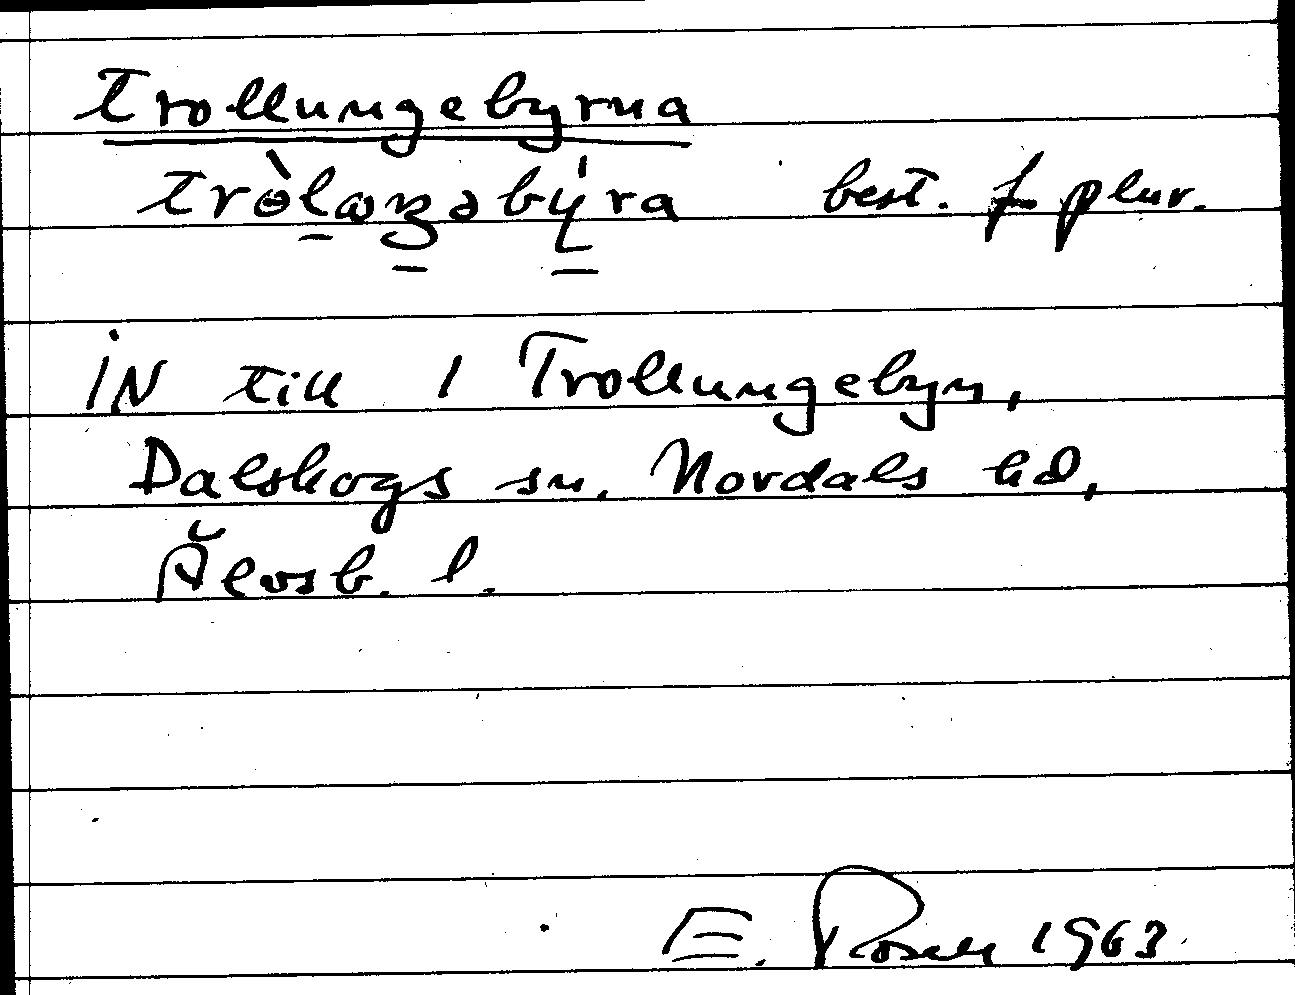 trollungebyrna
trɵ̀lɷŋəbýra best. f plur.
iN till 1 Trollungebyn,
Dalskogs sn. Nordals hd,
Älvsb. l.
E. Rosell 1963